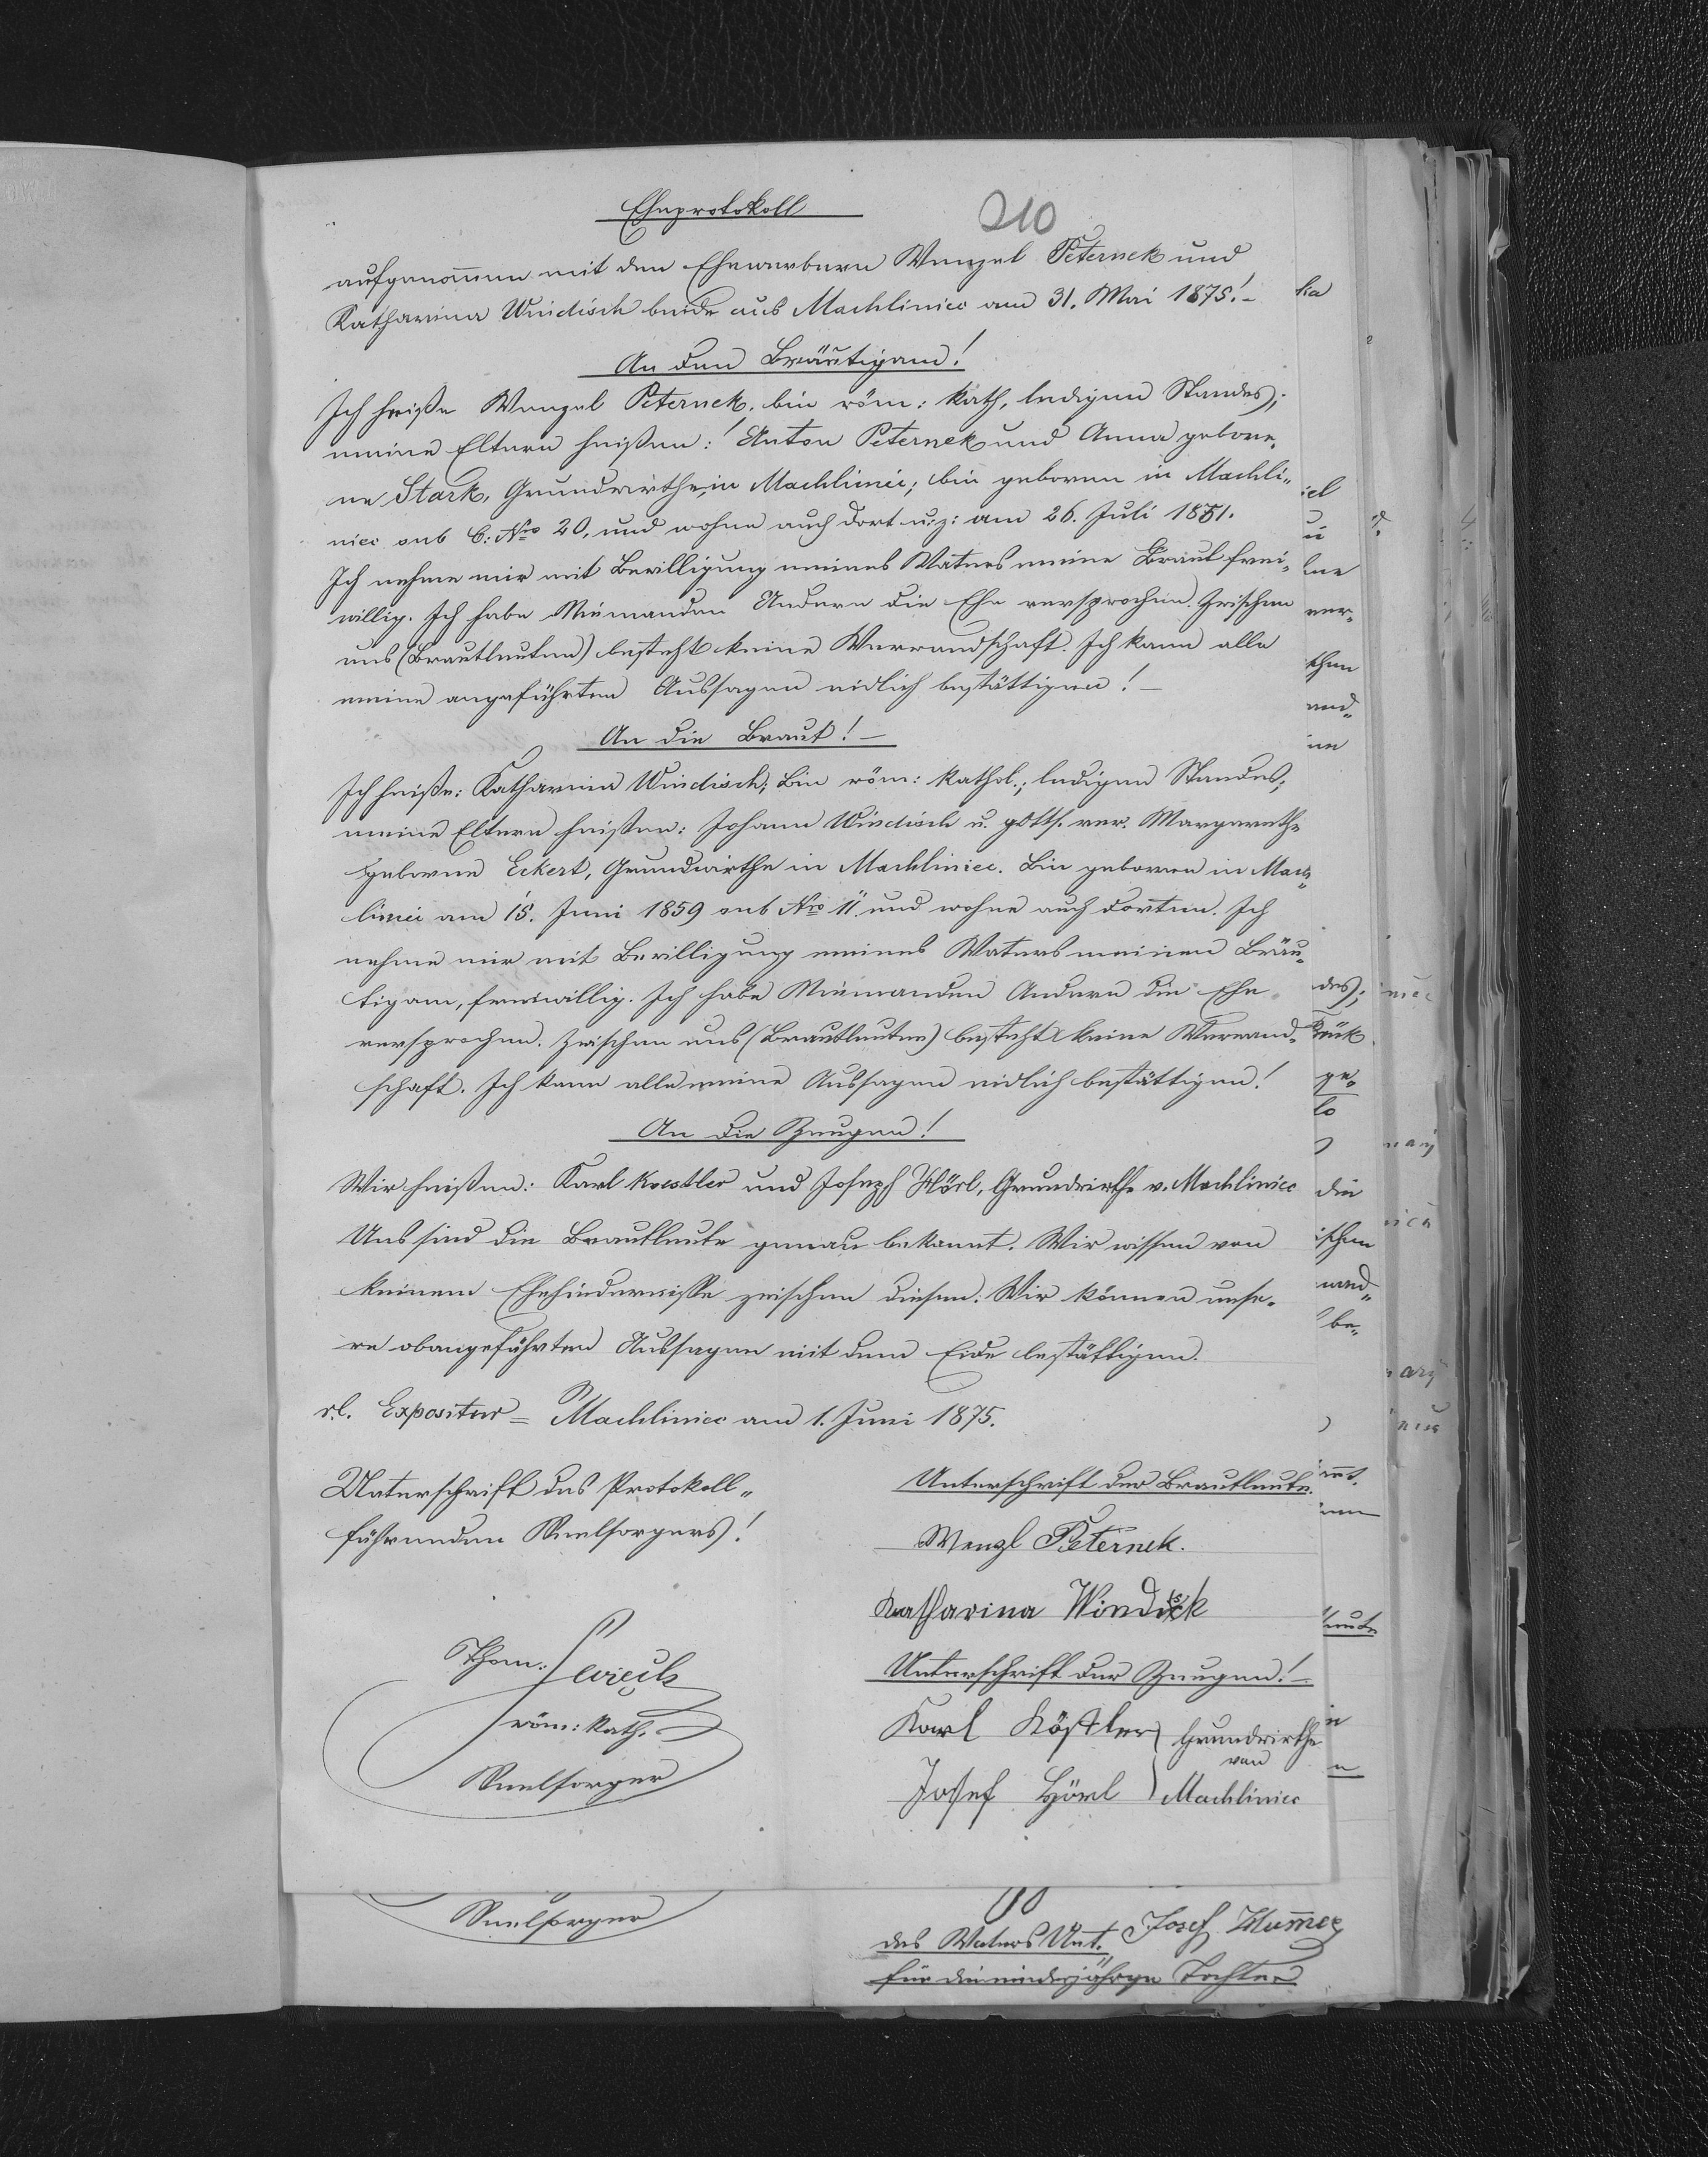 Eheprotokoll
210
aufgenom̄en mit den Ehewerbern Wenzel Peternek und
Katharina Windisch beide aus Machliniec am 31. Mai 1875! –
An den Bräutigam!
Ich heiße Wenzel Peternek, bin röm: kath, ledigen Standes;
meine Eltern heißen: Anton Peternek und Anna gebore„
ne Stark, Grundwirthe, in Machliniec; bin geboren in Machli„
niec sub C: Nro 20, und wohne auch dort u. z: am 26. Juli 1851.
Ich nehme mir mit Bewilligung meines Vaters meine Braut frei„
willig. Ich habe Niemanden Andern die Ehe versprochen. Zwischen
uns (Brautleuten) besteht keine Verwandschaft. Ich kann alle
meine angeführten Aussagen eidlich bestättigen! –
An die Braut! –
Ich heiße: Katharina Windisch; bin röm: kathol.; ledigen Standes;
meine Eltern heißen: Johann Windisch u. gotts. ver. Margarethe
geborne Eckert, Grundwirthe in Machliniec. Bin geboren in Mach„
liniec am 15. Juni 1859 sub Nro 11 und wohne auch dorten. Ich
nehme mir mit Bewilligung meines Vaters meinen Bräu„
tigam, freiwillig. Ich habe Niemanden Andern die Ehe
versprochen. Zwischen uns (Brautleuten) besteht keine Verwand„
schaft. Ich kann alle meine Aussagen eidlich bestättigen!
An die Zeugen!
Wir heißen: Karl Koestler und Joseph Hörl, Grundwirthe v. Machliniec
Uns sind die Brautleute genau bekannt. Wir wissen von
keinem Ehehindernisse zwischen diesen. Wir können unse„
re obangeführten Aussagen mit dem Eide bestättigen.
r.l. Expositur = Machliniec am 1. Juni 1875.
Unterschrift des Protokoll„
führenden Seelsorgers!
Thom.
röm: kath.
Seelsorger
Unterschrift der Brautleute.
Wenzl Peternek.
Katharina Windisck
Unterschrift der Zeugen! –
Karl Köstler
Josef Hörl
Grundwirthe
von
Machliniec
Seelsorger
Josef
des Vaters Unt.
für die minderjährige Tochter